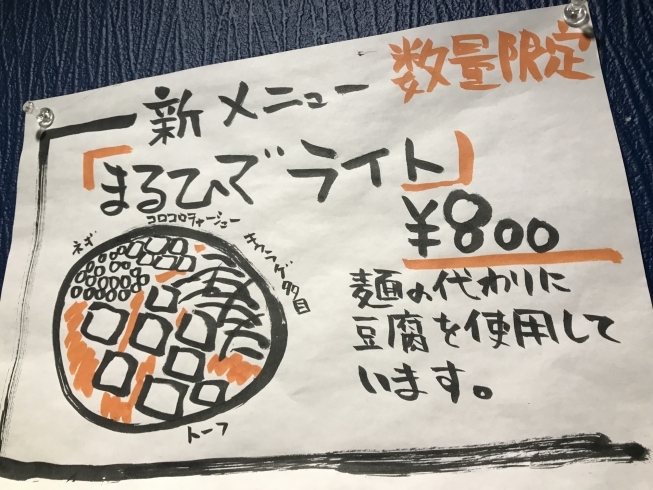 新メニュー
数量限定
「まるひでライト」
¥800
麺の代わりに
豆腐を使用して
います。
コロコロチャーシュー
ネギ
トーフ